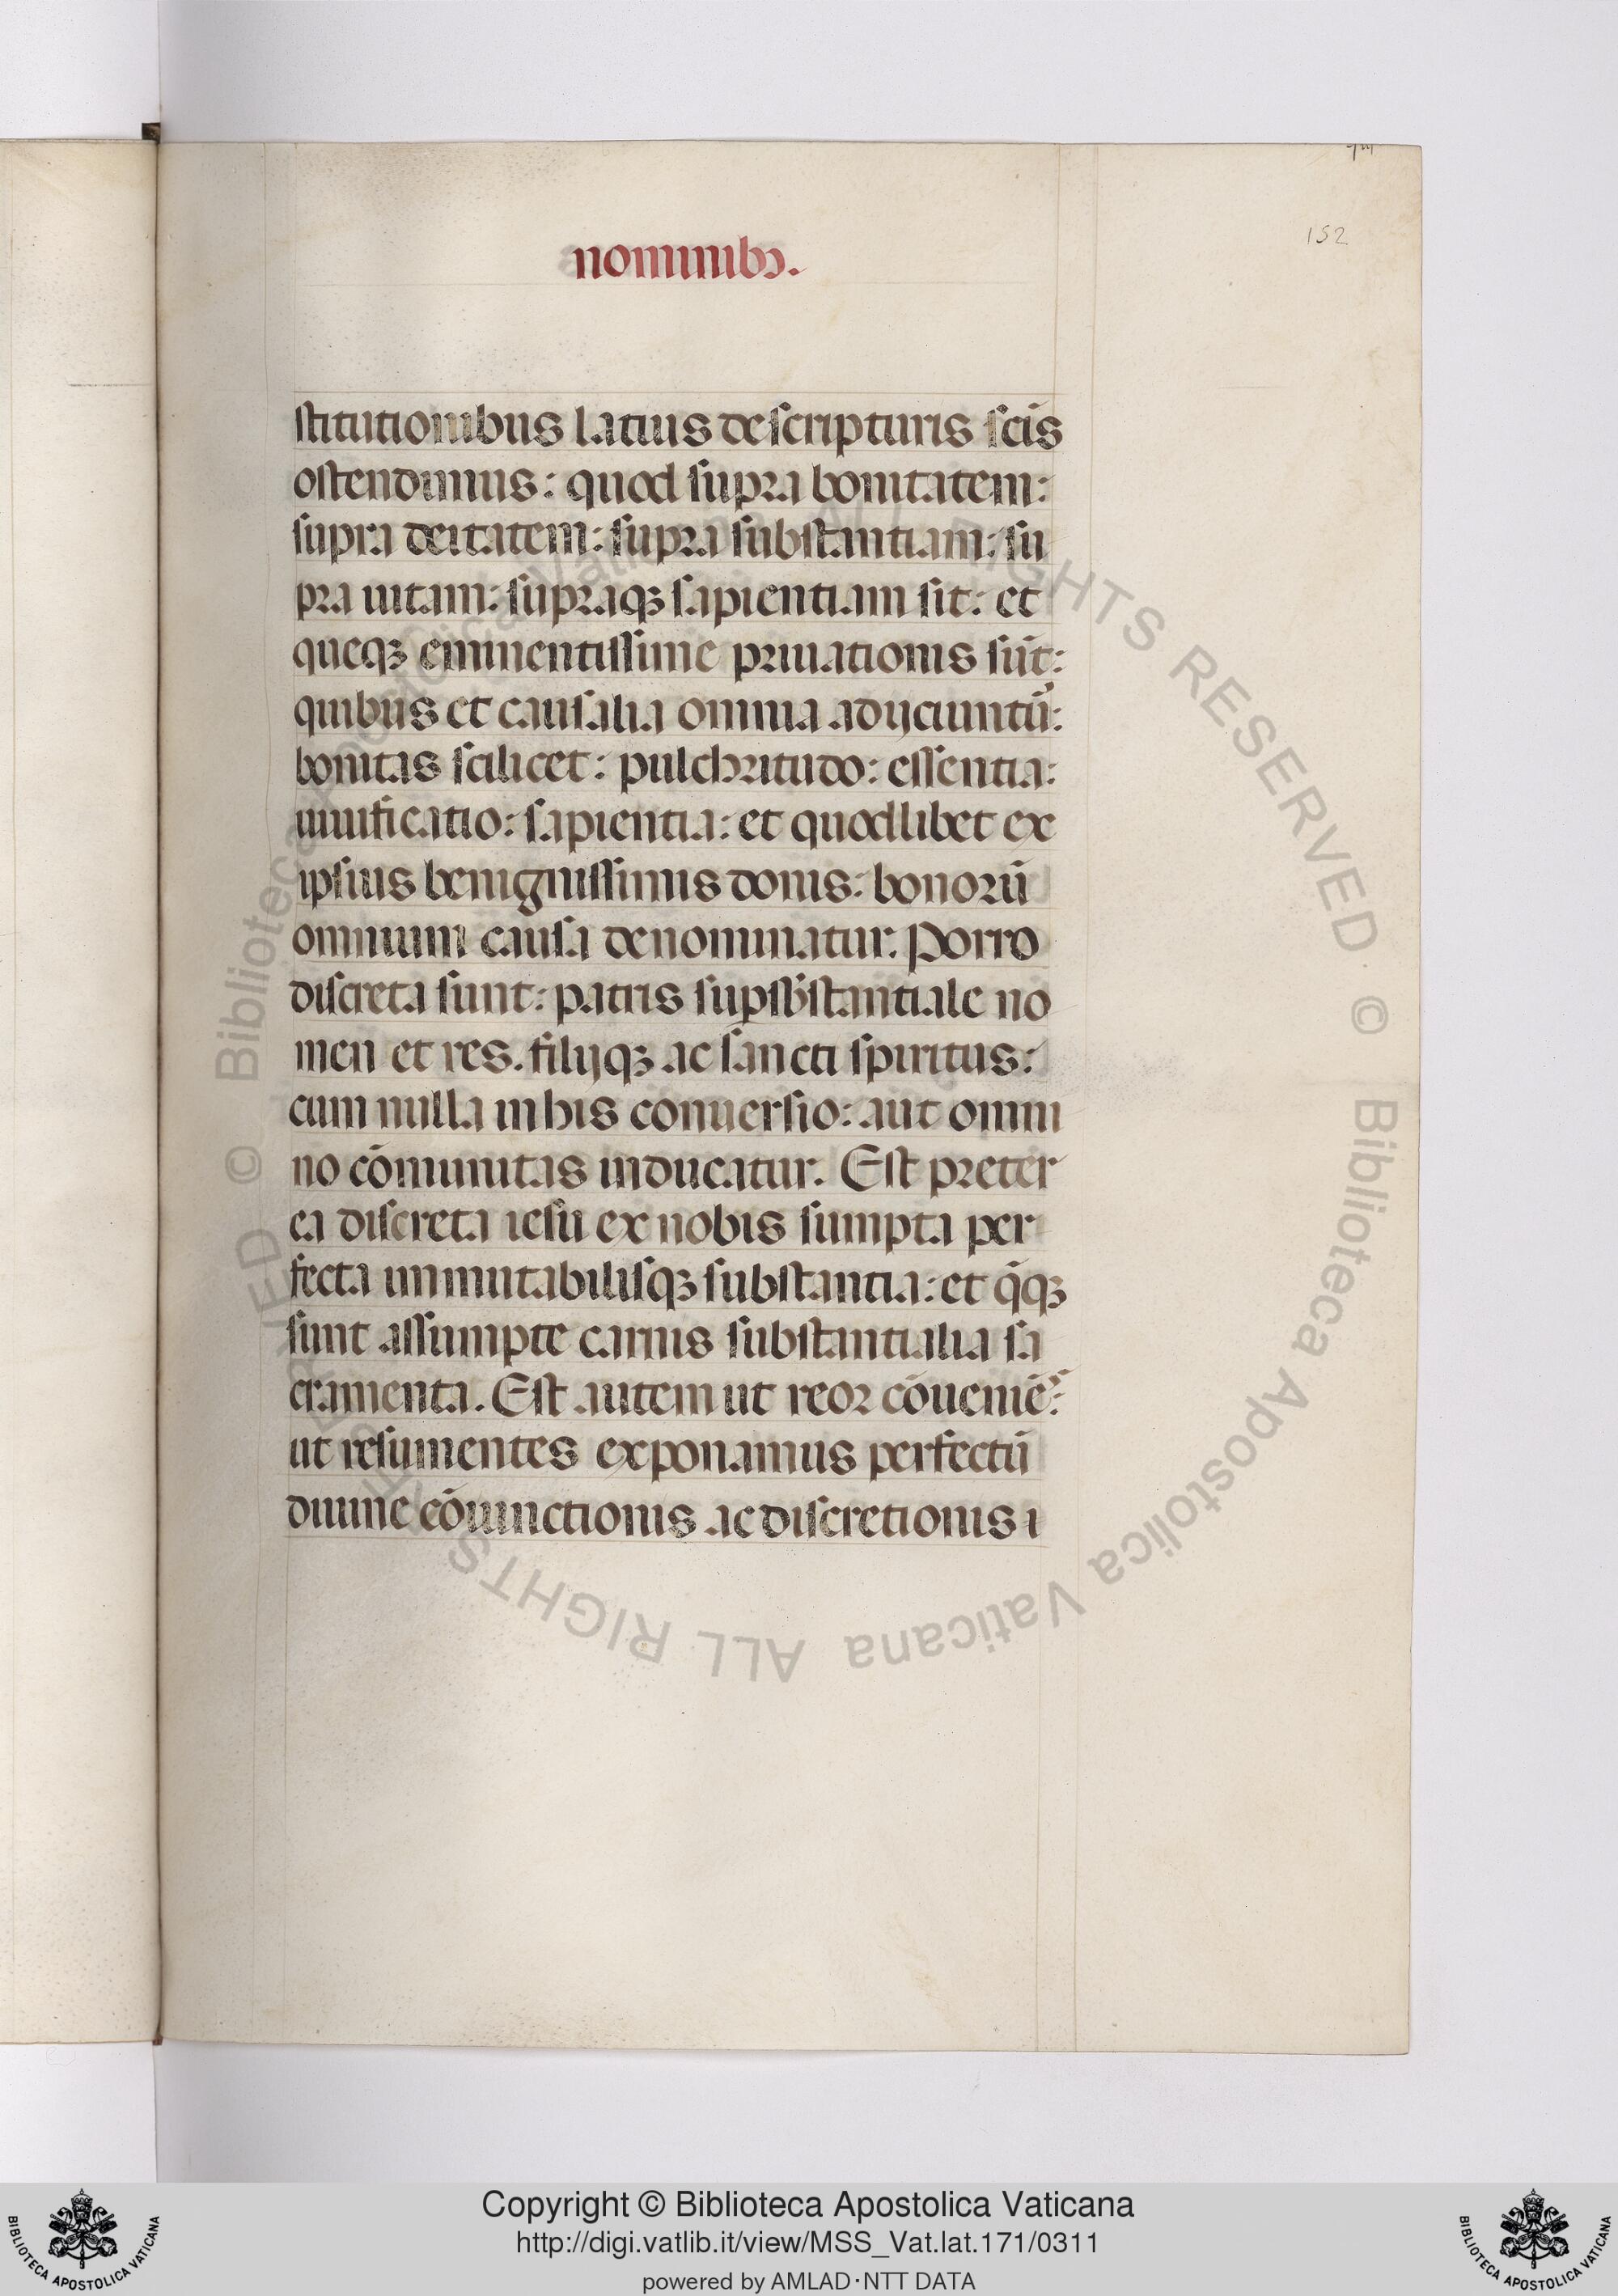 152
nominibꝫ.
stitutionibus latius de scripturis scīs
ostendimus: quod supra bonitatem:
supra deitatem: supra substantiam: su
pra uitam: supraqꝫ sapientiam sit: et
quęqꝫ eminentissime priuationis sūt:
quibus et causalia omnia adijciuntū:
bonitas scilicet: pulchritudo: essentia:
unificatio: sapientia: et quodlibet ex
ipsius benignissimis donis: bonorū
omnium causa denominatur. Porro
discreta sunt: patris supsb̄stantiale no
men et res. filijqꝫ ac sancti spiritus:
cum nulla in his conuersio: aut omni
no cōmunitas inducatur. Est preter
ea discreta iesu ex nobis sumpta per
fecta immutabilisqꝫ substantia: et q̄qꝫ
sunt assumpte carnis substantialia sa
cramenta. Est autem ut reor cōueniēs:
ut resumentes exponamus perfectū
diuine cōiunctionis ac discretionis i
© Biblioteca Apostolica Vaticana ALL RIGHTS RESERVED
© Biblioteca Apostolica Vaticana ALL RIGHTS RESERVED
Copyright © Biblioteca Apostolica Vaticana
http://digi.vatlib.it/view/MSS_Vat.lat.171/0311
powered by AMLAD·NTT DATA
BIBLIOTECA APOSTOLICA VATICANA
BIBLIOTECA APOSTOLICA VATICANA